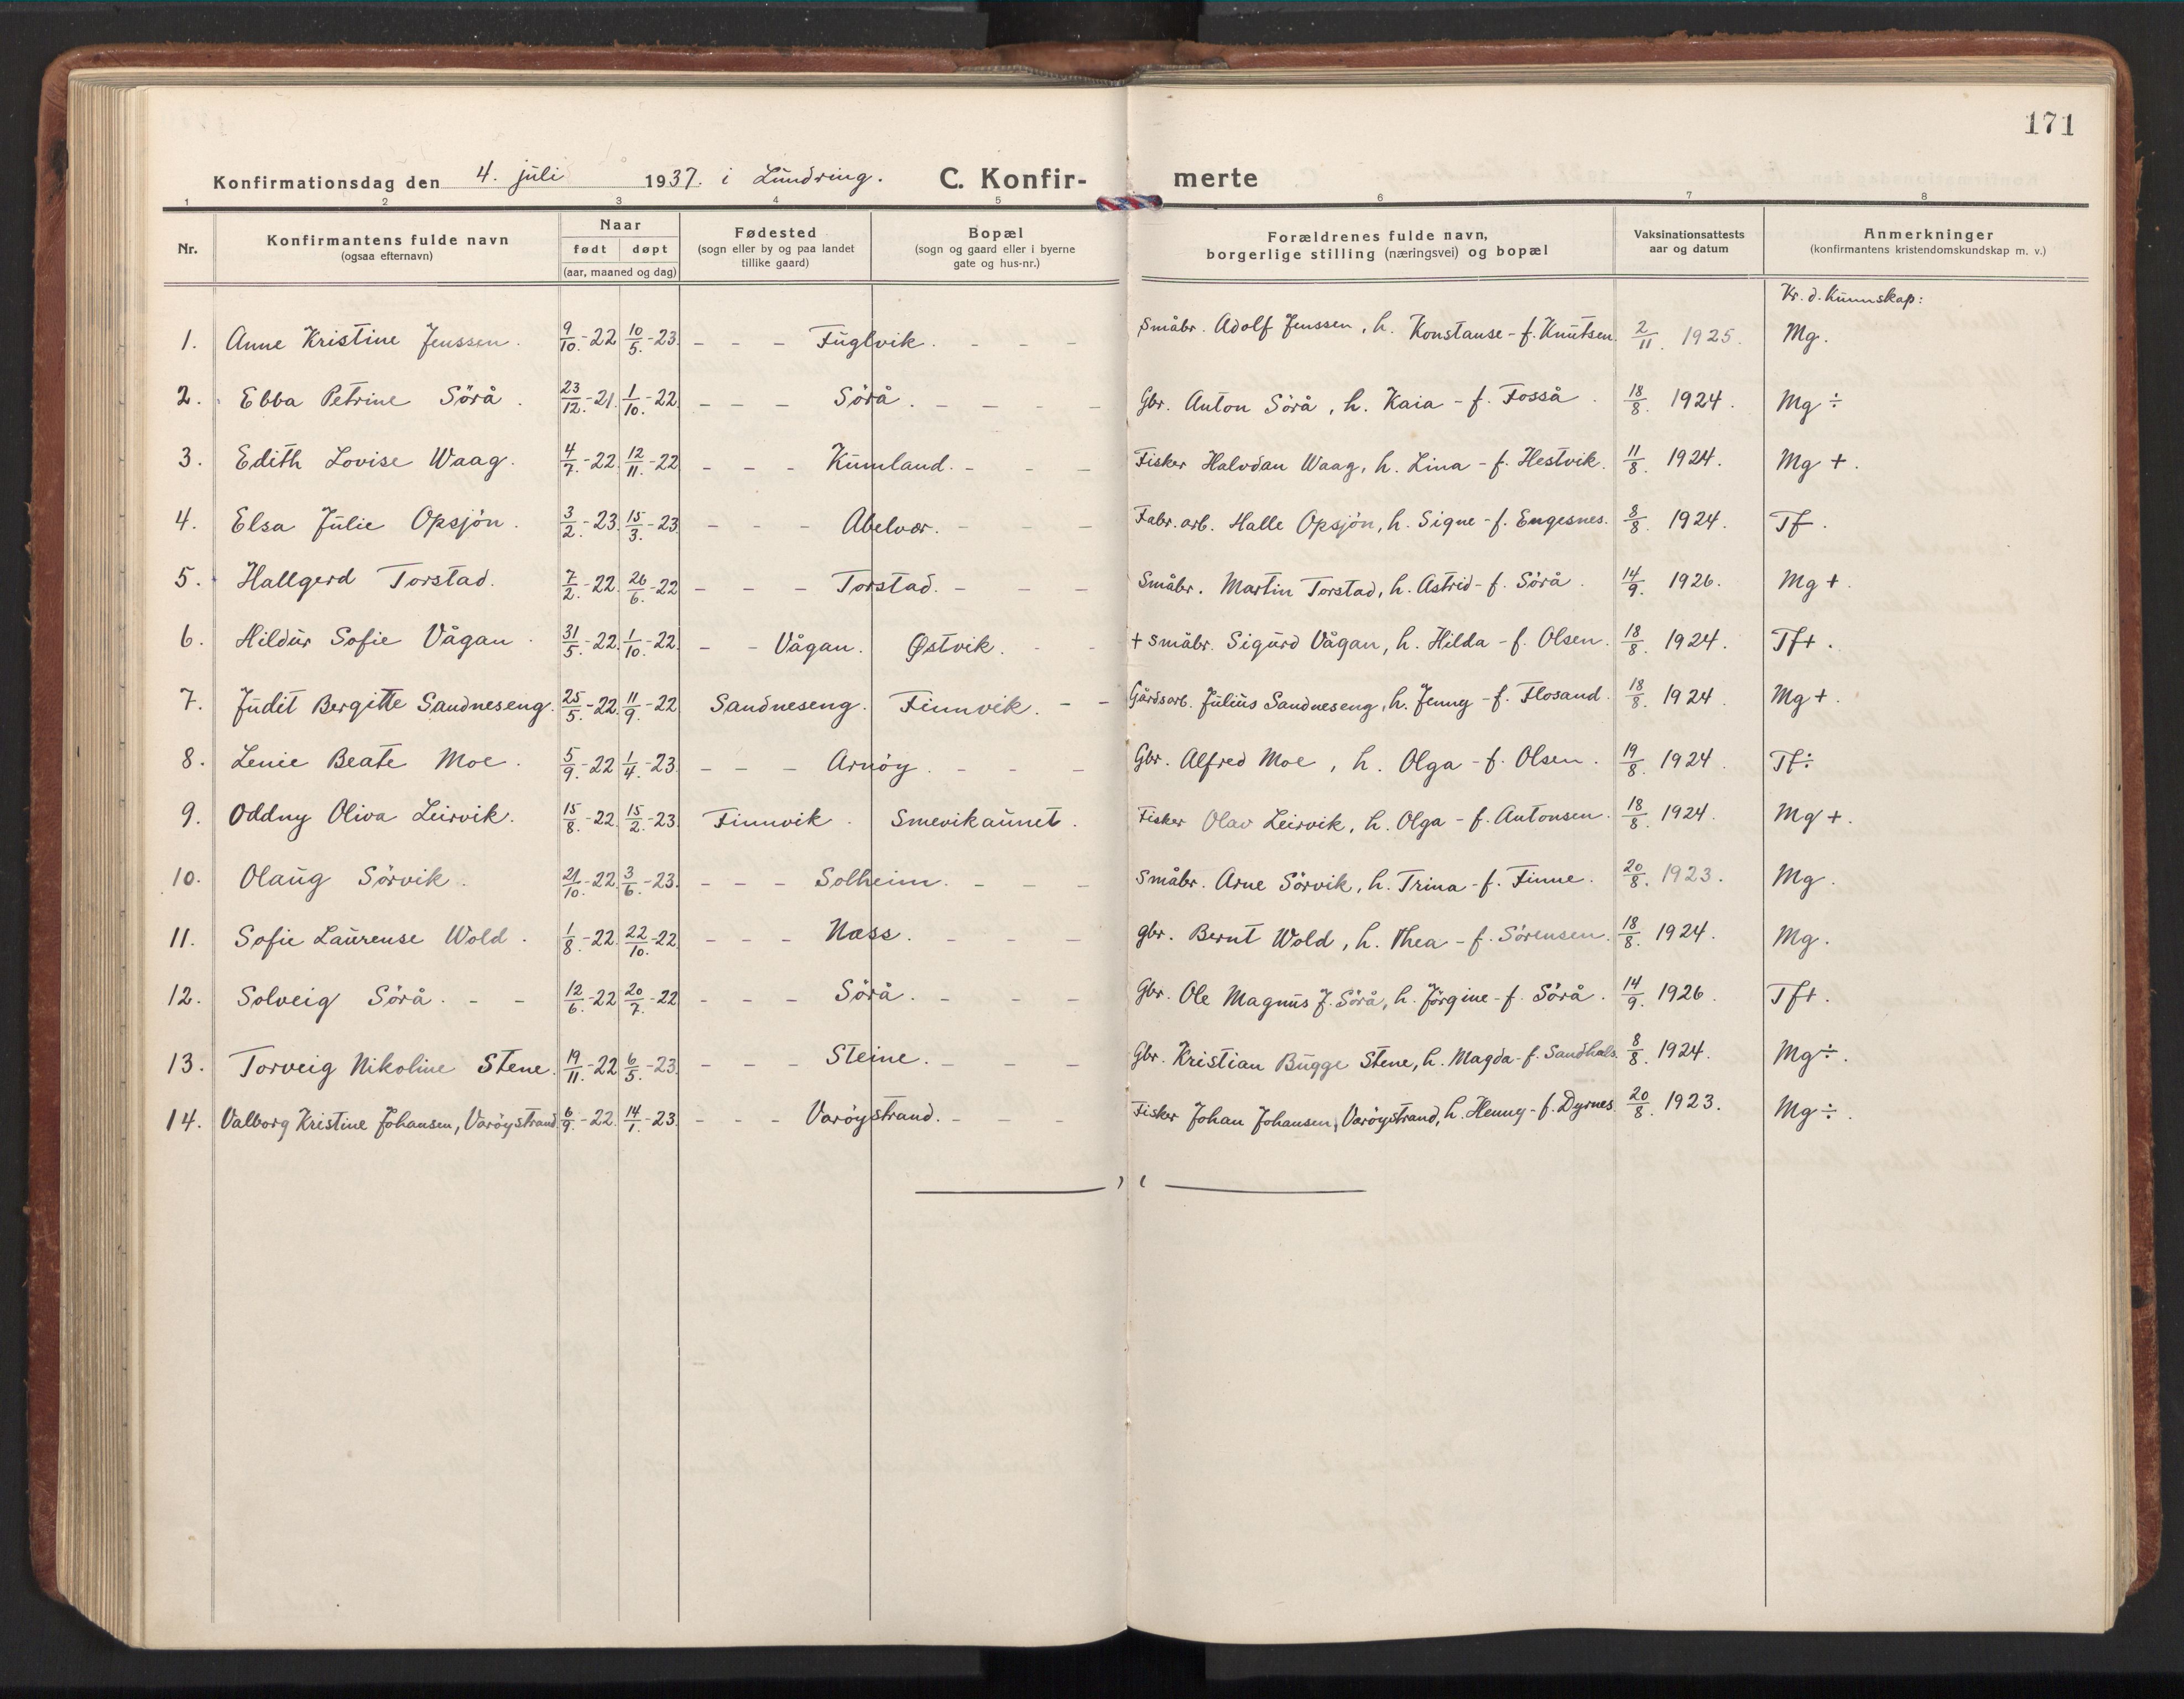 171
Konfirmationsdag den 4. juli 1937. i Lundring. C. Konfirmerte
1 2 3 4 5 6 7 8
Nr. Konfirmantens fulde navn (ogsaa efternavn) Naar født døpt (aar, maaned og dag) Fødested (sogn eller by og paa landet tillike gaard) Bopæl (sogn og gaard eller i byerne gate og hus-nr.) Forældrenes fulde navn, borgerlige stilling (næringsvei) og bopæl Vaksinationsattests aar og datum Anmerkninger (konfirmantens kristendomskundskap m. v.)
Kr. d. Kunnskap:
1. Anne Kristine Jenssen. 9/10.-22 10/5.-23. - - - Fuglvik. - - - Småbr. Adolf Jenssen, h. Konstanse - f. Knutsen. 2/11. 1925. Mg.
2. Ebba Petrine Sörå. 23/12.-21. 1/10.-22. - - - Sörå. - - - - Gbr. Anton Sörå, h. Kaia - f. Fosså. 18/8. 1924. Mg ÷
3. Edith Lovise Waag. 4/7.-22. 12/11.-22 - - - Kumland. - - - Fisker Halvdan Waag, h. Lina - f. Hestvik. 11/8. 1924. Mg +.
4. Elsa Julie Opsjön. 3/2.-23. 15/3.-23. - - - Abelvær. - - - Fabr. arb. Halle Opsjön, h. Signe - f. Engesnes. 8/8. 1924. Tf.
5. Hallgerd Torstad. 7/2.-22. 26/6.-22 - - - Torstad. - - - Småbr. Martin Torstad, h. Astrid - f. Sörå. 14/9. 1926. Mg +.
6. Hildur Sofie Vågan. 31/5.-22. 1/10.-22. - - Vågan. Østvik. - - + Småbr. Sigurd Vågan, h. Hilda - f. Olsen. 18/8. 1924. Tf+.
7. Judit Bergitte Sandneseng. 25/5.-22. 11/9.-22 Sandneseng. Finnvik. - - Gårdsarb. Julius Sandneseng, h. Jenny - f. Flosand. 18/8. 1924 Mg +.
8. Lenie Beate Moe. 5/9.-22 1/4.-23. - - - Arnöy. - - - Gbr. Alfred Moe, h. Olga - f. Olsen. 19/8. 1924. Tf÷
9. Oddny Oliva Leirvik. 15/8.-22. 15/2.-23. Finnvik. Smevikaunet. Fisker Olav Leirvik, h. Olga - f. Antonsen. 18/8. 1924. Mg +.
10. Olaug Sörvik. 21/10.-22. 3/6.-23. - - - Solheim. - - - Småbr. Arne Sörvik, h. Trina - f. Finne. 20/8. 1923. Mg.
11. Sofie Laurense Wold. 1/8.-22. 22/10.-22 - - - Næss. - - - gbr. Bernt Wold, h. Thea - f. Sörensen. 18/8. 1924. Mg.
12. Solveig Sörå. - - 12/6.-22 20/7.-22 - - - Sörå. - - - Gbr. Ole Magnus J. Sörå, h. Jörgine - f. Sörå. 14/9. 1926. Tf+.
13. Torveig Nikoline Stene. 19/11.-22 6/5.-23. - - - Steine. - - - Gbr. Kristian Bugge Stene, h. Magda - f. Sandhals. 8/8. 1924. Mg÷.
14. Valborg Kristine Johansen, Varöystrand. 6/9.-22. 14/1.-23. - - - Varöystrand. - - - Fisker Johan Johansen, Varöystrand, h. Henny - f. Dyrnes. 20/8. 1923. Mg÷.